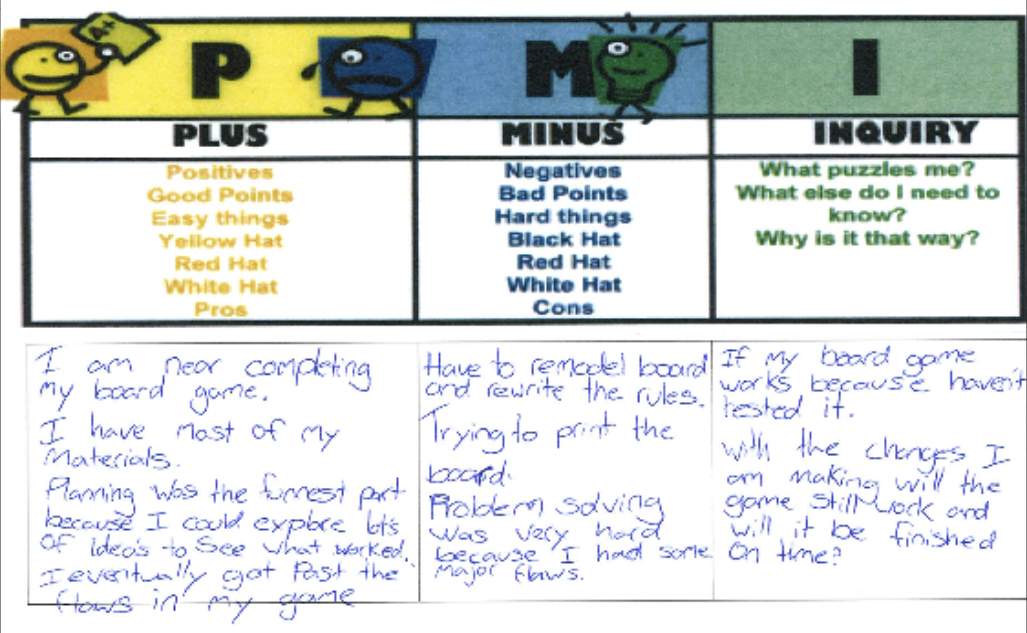 A+
P
M
I
PLUS
MINUS
INQUIRY
Positives
Good Points
Easy things
Yellow Hat
Red Hat
White Hat
Pros
Negatives
Bad Points
Hard things
Black Hat
Red Hat
White Hat
Cons
What puzzles me?
What else do I need to
know?
Why is it that way?
I am near completing
my board game.
I have most of my
Materials.
Planning was the funnest part
because I could explore lots
of Idea's to See what worked.
I eventually got Past the
flaws in my game
Have to remodel board
and rewrite the rules.
Trying to print the
board.
Problem solving
was very hard
because I had some
Major flaws.
If my board game
works because haven't
tested it.
With the changes I
am making will the
game Still work and
will it be finished
On time?